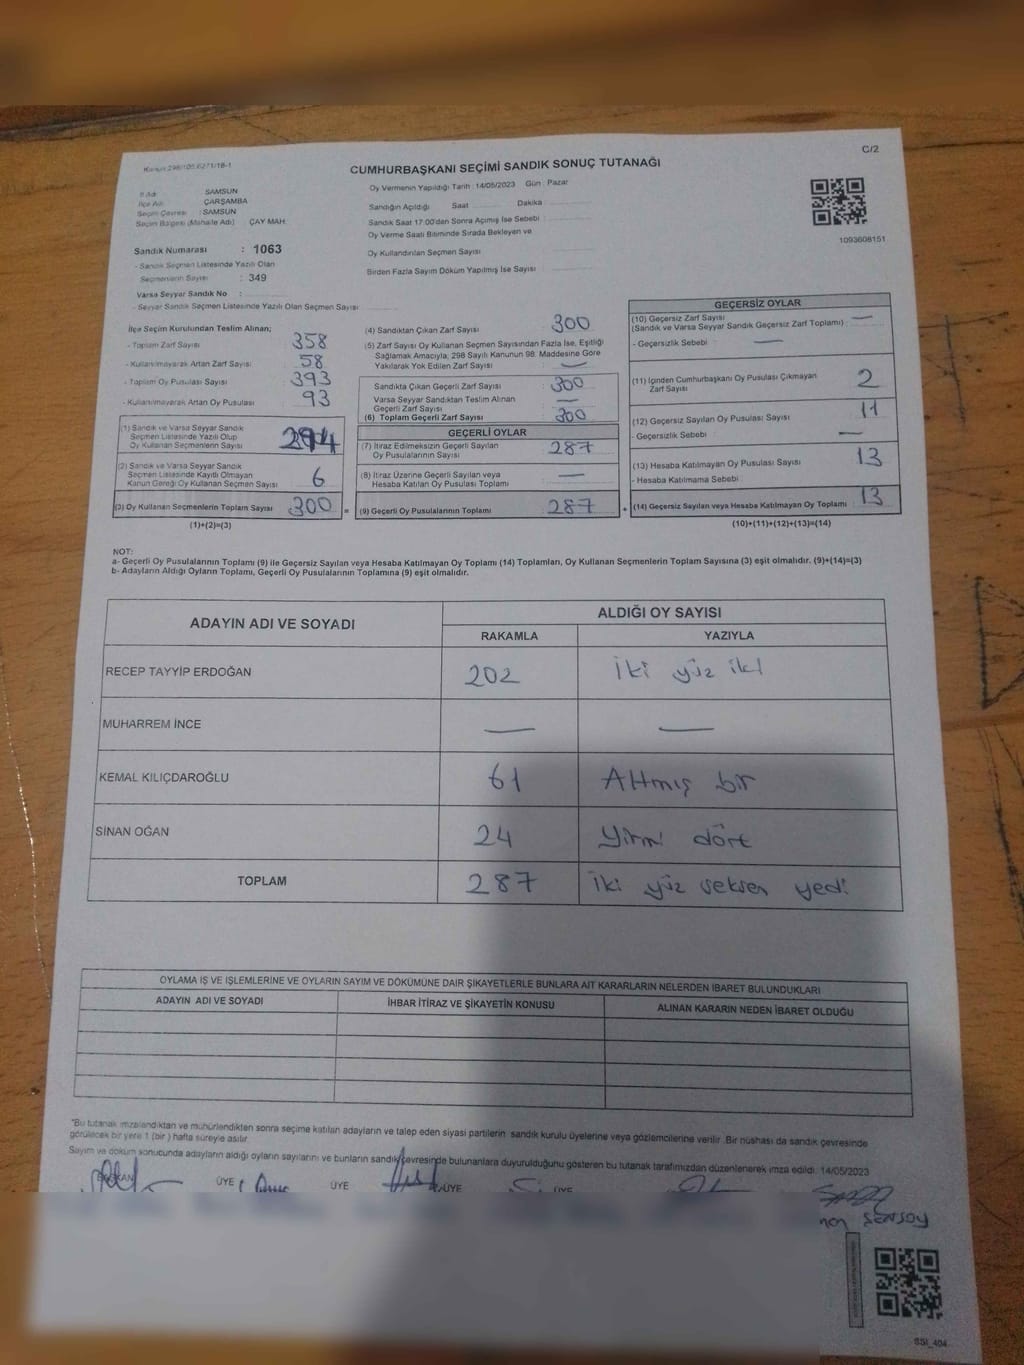 Kanun 298/105,6271/18-1
C/2
CUMHURBAŞKANI SEÇİMİ SANDIK SONUÇ TUTANAĞI
İl Adı : SAMSUN
İlçe Adı : ÇARŞAMBA
Seçim Çevresi : SAMSUN
Seçim Bölgesi (Mahalle Adı) : ÇAY MAH.
Sandık Numarası : 1063
- Sandık Seçmen Listesinde Yazılı Olan
Seçmenlerin Sayısı : 349
Varsa Seyyar Sandık No :
- Seyyar Sandık Seçmen Listesinde Yazılı Olan Seçmen Sayısı
Oy Vermenin Yapıldığı Tarih : 14/05/2023 Gün : Pazar
Sandığın Açıldığı Saat Dakika
Sandık Saat 17:00'den Sonra Açımış İse Sebebi
Oy Verme Saati Bitiminde Sırada Bekleyen ve
Oy Kullandırılan Seçmen Sayısı
Birden Fazla Sayım Döküm Yapılmış İse Sayısı
1093608151
İlçe Seçim Kurulundan Teslim Alınan;
- Toplam Zarf Sayısı : 358
- Kullanılmayarak Artan Zarf Sayısı : 58
- Toplam Oy Pusulası Sayısı : 393
- Kullanılmayarak Artan Oy Pusulası : 93
(1) Sandık ve Varsa Seyyar Sandık
Seçmen Listesinde Yazılı Olup
Oy Kullanan Seçmenlerin Sayısı 294
(2) Sandık ve Varsa Seyyar Sandık
Seçmen Listesinde Kayıtlı Olmayan
Kanun Gereği Oy Kullanan Seçmen Sayısı 6
(3) Oy Kullanan Seçmenlerin Toplam Sayısı 300 =
(1)+(2)=(3)
(4) Sandıktan Çıkan Zarf Sayısı 300
(5) Zarf Sayısı Oy Kullanan Seçmen Sayısından Fazla İse, Eşitliği
Sağlamak Amacıyla; 298 Sayılı Kanunun 98. Maddesine Göre
Yakılarak Yok Edilen Zarf Sayısı : —
Sandıkta Çıkan Geçerli Zarf Sayısı : 300
Varsa Seyyar Sandıktan Teslim Alınan
Geçerli Zarf Sayısı : —
(6) Toplam Geçerli Zarf Sayısı : 300
GEÇERLİ OYLAR
(7) İtiraz Edilmeksizin Geçerli Sayılan
Oy Pusulalarının Sayısı : 287
(8) İtiraz Üzerine Geçerli Sayılan veya
Hesaba Katılan Oy Pusulası Toplamı : —
(9) Geçerli Oy Pusulalarının Toplamı : 287 +
GEÇERSİZ OYLAR
(10) Geçersiz Zarf Sayısı
(Sandık ve Varsa Seyyar Sandık Geçersiz Zarf Toplamı) : —
- Geçersizlik Sebebi : —
(11) İçinden Cumhurbaşkanı Oy Pusulası Çıkmayan
Zarf Sayısı : 2
(12) Geçersiz Sayılan Oy Pusulası Sayısı : 11
- Geçersizlik Sebebi : —
(13) Hesaba Katılmayan Oy Pusulası Sayısı : 13
- Hesaba Katılmama Sebebi
(14) Geçersiz Sayılan veya Hesaba Katılmayan Oy Toplamı : 13
(10)+(11)+(12)+(13)=(14)
NOT:
a- Geçerli Oy Pusulalarının Toplamı (9) ile Geçersiz Sayılan veya Hesaba Katılmayan Oy Toplamı (14) Toplamları, Oy Kullanan Seçmenlerin Toplam Sayısına (3) eşit olmalıdır. (9)+(14)=(3)
b- Adayların Aldığı Oyların Toplamı, Geçerli Oy Pusulalarının Toplamına (9) eşit olmalıdır.
ADAYIN ADI VE SOYADI ALDIĞI OY SAYISI
RAKAMLA YAZIYLA
RECEP TAYYİP ERDOĞAN 202 İki yüz iki
MUHARREM İNCE — —
KEMAL KILIÇDAROĞLU 61 Altmış bir
SİNAN OĞAN 24 Yirmi dört
TOPLAM 287 İki yüz seksen yedi
OYLAMA İŞ VE İŞLEMLERİNE VE OYLARIN SAYIM VE DÖKÜMÜNE DAİR ŞİKAYETLERLE BUNLARA AİT KARARLARIN NELERDEN İBARET BULUNDUKLARI
ADAYIN ADI VE SOYADI İHBAR İTİRAZ VE ŞİKAYETİN KONUSU ALINAN KARARIN NEDEN İBARET OLDUĞU
"Bu tutanak imzalandıktan ve mühürlendikten sonra seçime katılan adayların ve talep eden siyasi partilerin sandık kurulu üyelerine veya gözlemcilerine verilir. Bir nüshası da sandık çevresinde
görülecek bir yere 1 (bir) hafta süreyle asılır.
Sayım ve döküm sonucunda adayların aldığı oyların sayılarını ve bunların sandık çevresinde bulunanlara duyurulduğunu gösteren bu tutanak tarafımızdan düzenlenerek imza edildi. 14/05/2023
BAŞKAN ÜYE ÜYE ÜYE ÜYE
SSİ_404